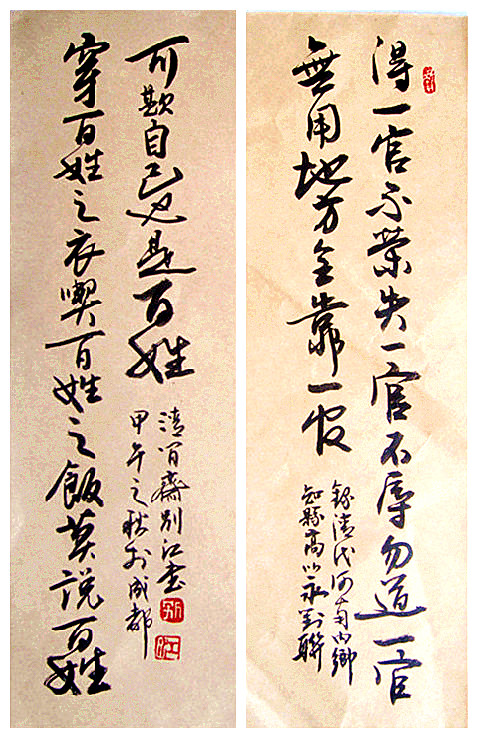 得一官不榮失一官不辱勿道一官
無用地方全靠一官
錄清代河南內鄉
知縣高以永對聯
穿百姓之衣喫百姓之飯莫說百姓
可欺自己也是百姓
清齋別江書
甲午之秋於成都
別
江